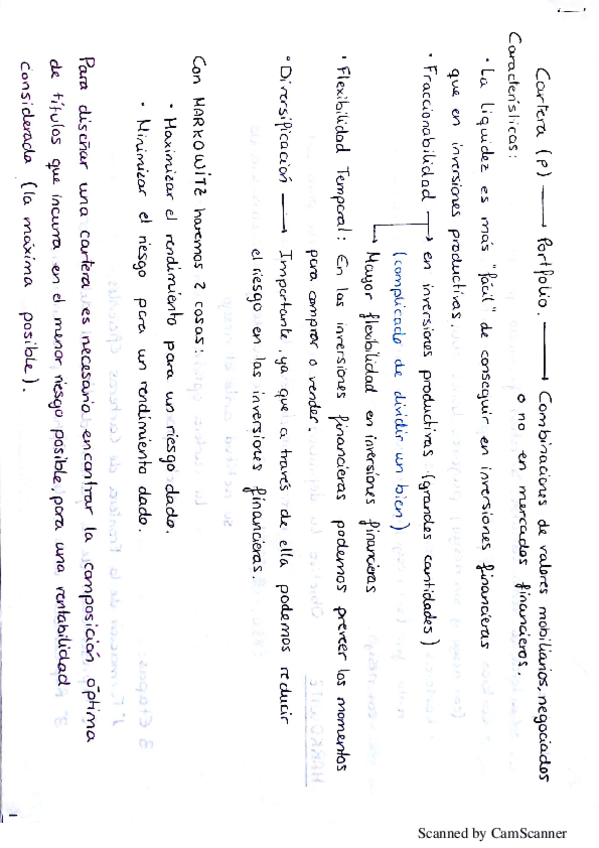 Cartera (p) → Portfolio. → Combinaciones de valores mobiliarios, negociados
o no en mercados financieros.
Características:
· La liquidez es más "fácil" de conseguir en inversiones financieras
que en inversiones productivas.
· Fraccionabilidad → en inversiones productivas (grandes cantidades)
(complicado de dividir un bien)
→ Mayor flexibilidad en inversiones financieras
· Flexibilidad Temporal: En las inversiones financieras podemos preveer los momentos
para comprar o vender.
· Diversificación → Importante, ya que a través de ella podemos reducir
el riesgo en las inversiones financieras.
Con MARKOWITZ haremos 2 cosas:
· Maximizar el rendimiento para un riesgo dado.
· Minimizar el riesgo para un rendimiento dado.
Para diseñar una cartera es necesario encontrar la composición óptima
de títulos que incurra en el menor riesgo posible, para una rentabilidad
considerada (la máxima posible).
Scanned by CamScanner